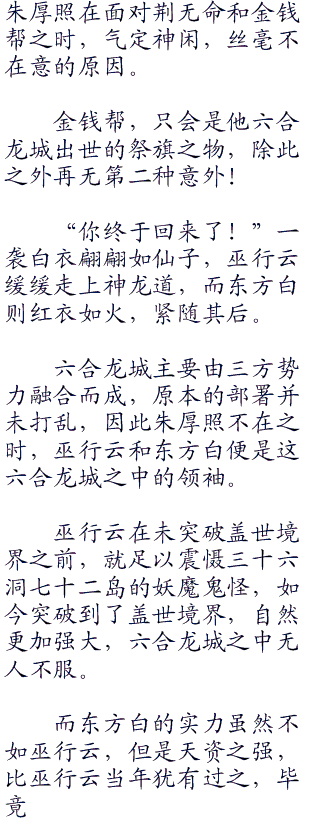 朱厚照在面对荆无命和金钱
帮之时，气定神闲，丝毫不
在意的原因。
金钱帮，只会是他六合
龙城出世的祭旗之物，除此
之外再无第二种意外！
“你终于回来了！”一
袭白衣翩翩如仙子，巫行云
缓缓走上神龙道，而东方白
则红衣如火，紧随其后。
六合龙城主要由三方势
力融合而成，原本的部署并
未打乱，因此朱厚照不在之
时，巫行云和东方白便是这
六合龙城之中的领袖。
巫行云在未突破盖世境
界之前，就足以震慑三十六
洞七十二岛的妖魔鬼怪，如
今突破到了盖世境界，自然
更加强大，六合龙城之中无
人不服。
而东方白的实力虽然不
如巫行云，但是天资之强，
比巫行云当年犹有过之，毕
竟